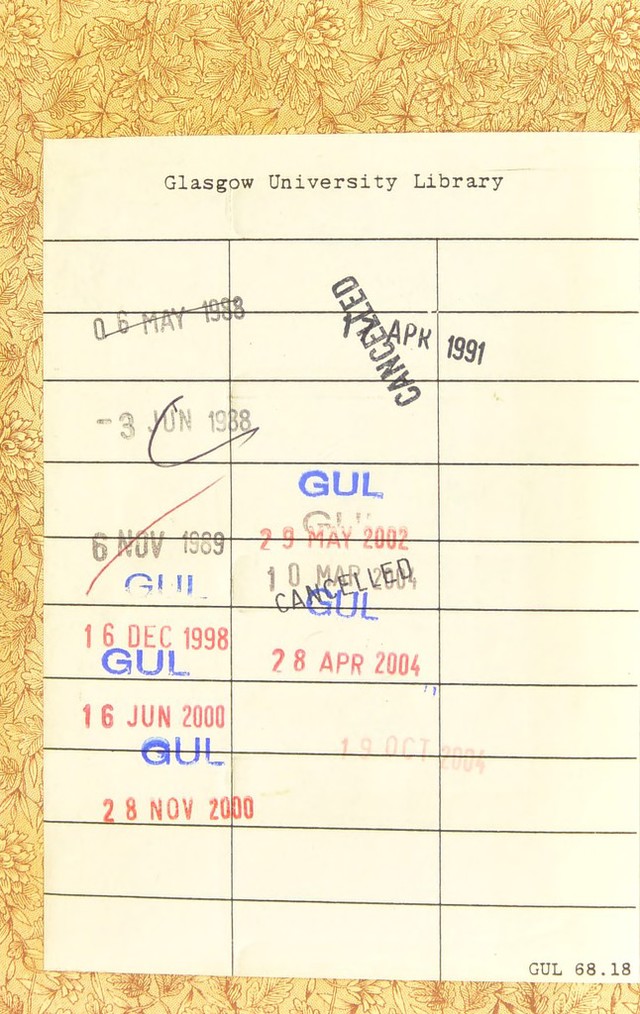 Glasgow University Library
0 6 MAY 1988
- 3 JUN 1988
6 NOV 1989
GUL
1 6 DEC 1998
GUL
1 6 JUN 2000
GUL
2 8 NOV 2000
CANCELLED
APR 1991
GUL
GUL
2 9 MAY 2002
1 0 MAR 2004
CANCELLED
GUL
2 8 APR 2004
1 9 OCT 2004
GUL 68.18